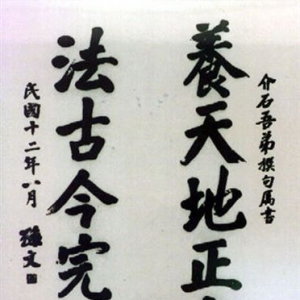 介石吾弟撰句属書
養天地正
法古今完
民國十二年八月
孫文